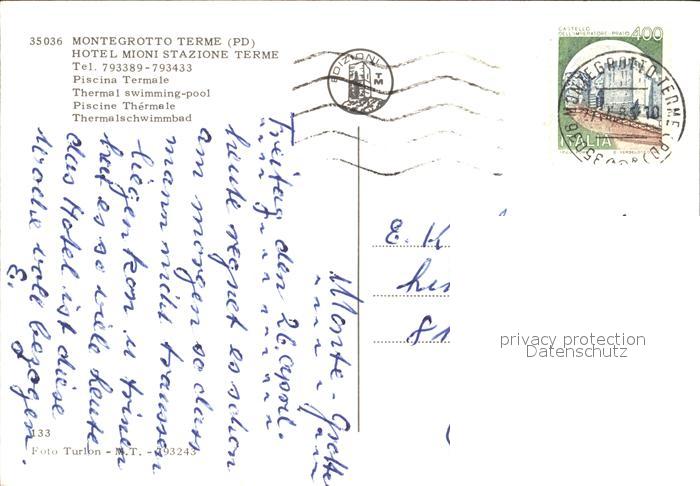 35036 MONTEGROTTO TERME (PD)
HOTEL MIONI STAZIONE TERME
Tel. 793389-793433
Piscina Termale
Thermal swimming-pool
Piscine Thérmale
Thermalschwimmbad
EDIZIONI
TM
CASTELLO
DELL'IMPERATORE-PRATO
400
ITALIA
35036 MONTEGROTTO TERME (PD)
Monte-Grotto
Freitag den 26. April.
heute regnet es schon
am morgen so dass
mann nicht draussen
liegen kan. u. drinen
hat es so viele heute
das Hotel ist diese
Woche voll bezogen.
E.
E. K
81
privacy protection
Datenschutz
133
Foto Turlon - M.T. - 793243